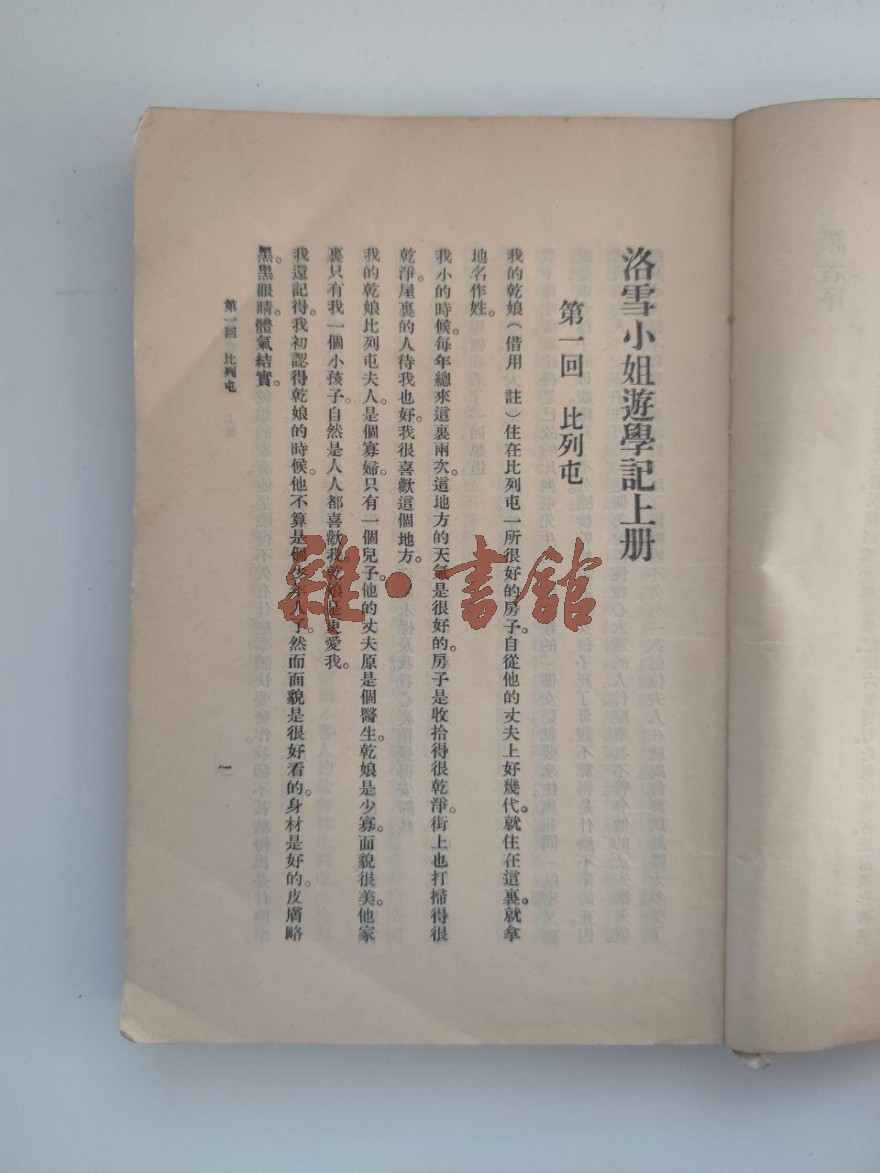 洛雪小姐遊學記上册
第一回 比列屯
我的乾娘(借用 註)住在比列屯一所很好的房子。自從他的丈夫上好幾代。就住在這裏。就拿
地名作姓。
我小的時候。每年總來這裏兩次。這地方的天氣是很好的。房子是收拾得很乾淨。街上也打掃得很
乾淨。屋裏的人待我也好。我很喜歡這個地方。
我的乾娘比列屯夫人。是個寡婦。只有一個兒子。他的丈夫原是個醫生。乾娘是少寡。面貌很美。他家
裏只有我一個小孩子。自然是人人都喜歡我。乾娘是更愛我。
我還記得。我初認得乾娘的時候。他不算是個少年人了。然而面貌是很好看的。身材是好的。皮膚略
黑。黑眼睛。體氣結實。
第一回 比列屯
一
雜·書館